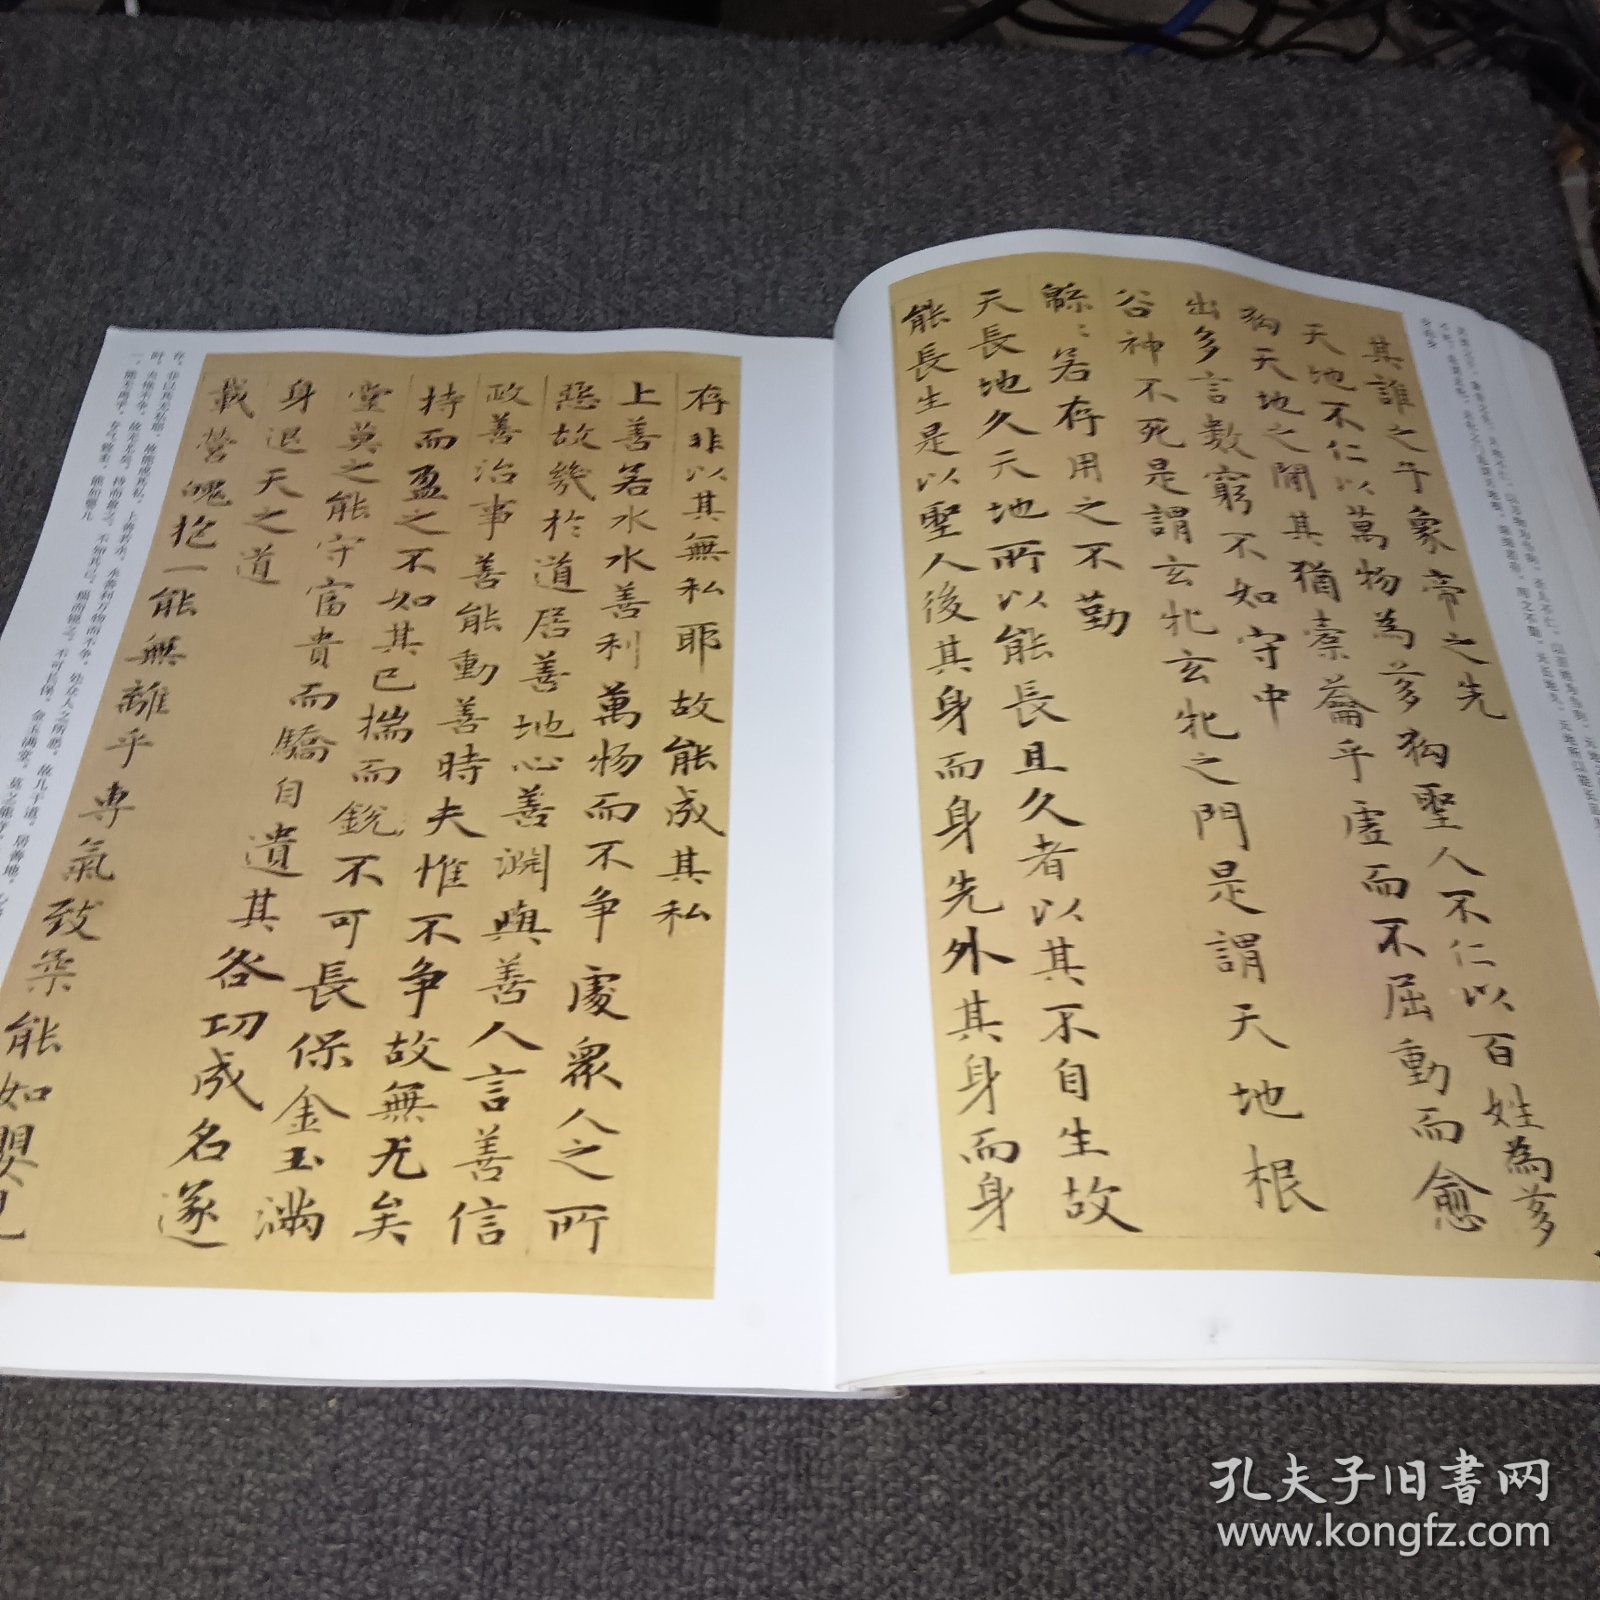 其誰之子象帝之先
天地不仁以萬物為芻狗聖人不仁以百姓為芻
狗天地之間其猶橐籥乎虛而不屈動而愈
出多言數窮不如守中
谷神不死是謂玄牝玄牝之門是謂天地根
緜〻若存用之不勤
天長地久天地所以能長且久者以其不自生故
能長生是以聖人後其身而身先外其身而身
存非以其無私耶故能成其私
上善若水水善利萬物而不爭處衆人之所
惡故幾於道居善地心善淵與善人言善信
政善治事善能動善時夫惟不爭故無尤矣
持而盈之不如其已揣而銳不可長保金玉滿
堂莫之能守富貴而驕自遺其咎功成名遂
身退天之道
載營魄抱一能無離乎專氣致柔能如嬰兒
存。非以其无私耶,故能成其私。上善若水。水善利万物而不争,处众人之所恶,故几于道。居善地,心善
孔夫子旧书网
www.kongfz.com